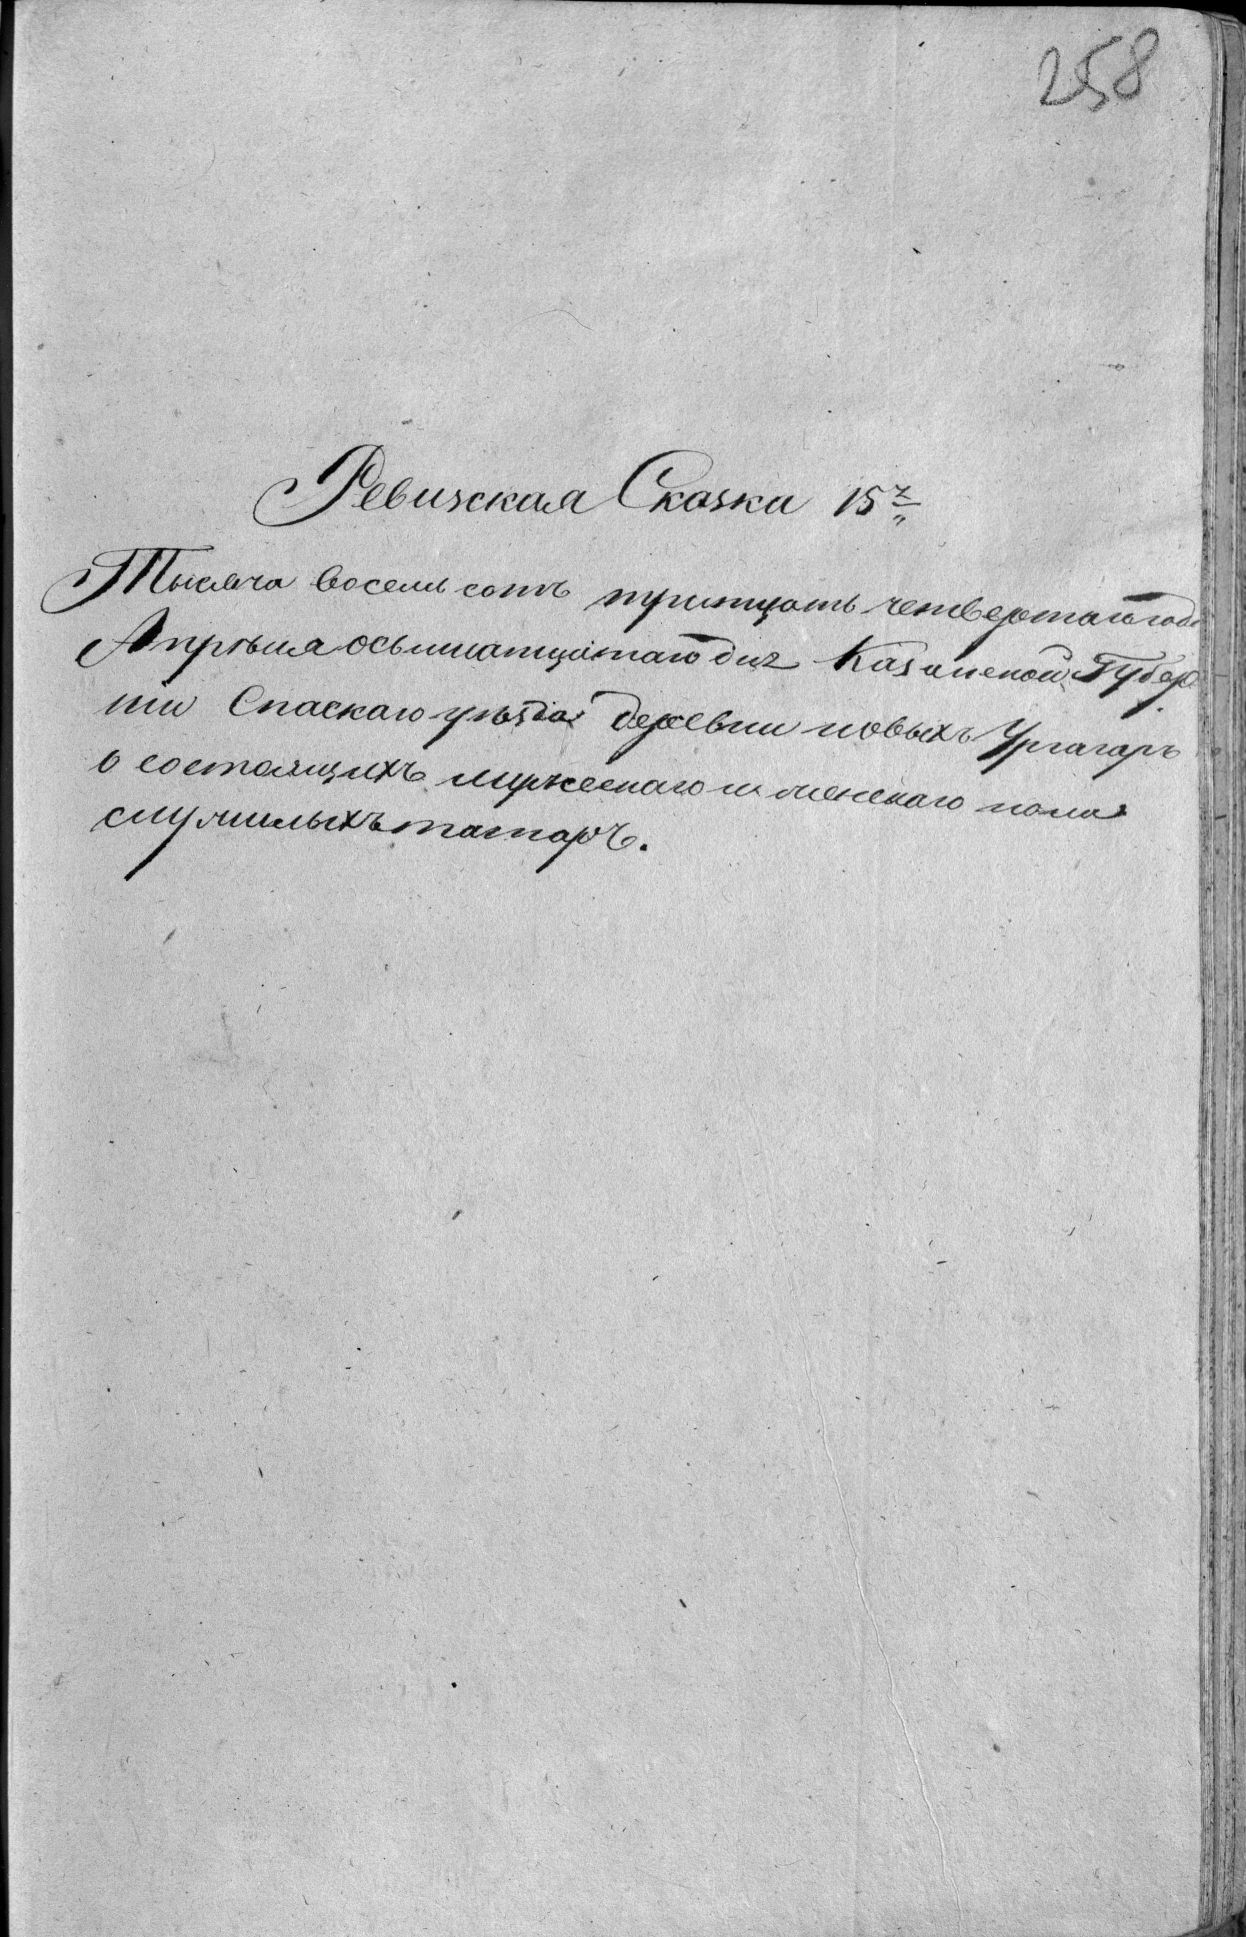 258
Ревизская Сказка 15ъ
Тысяча восемь сотъ тритцать четвертаго года
Апрѣля осьминатцатаго дня Казанской Губер
ніи Спаскаго уѣзда деревни новыхъ Ургагаръ
о состоящихъ мужескаго и женскаго пола
служилыхъ татаръ.